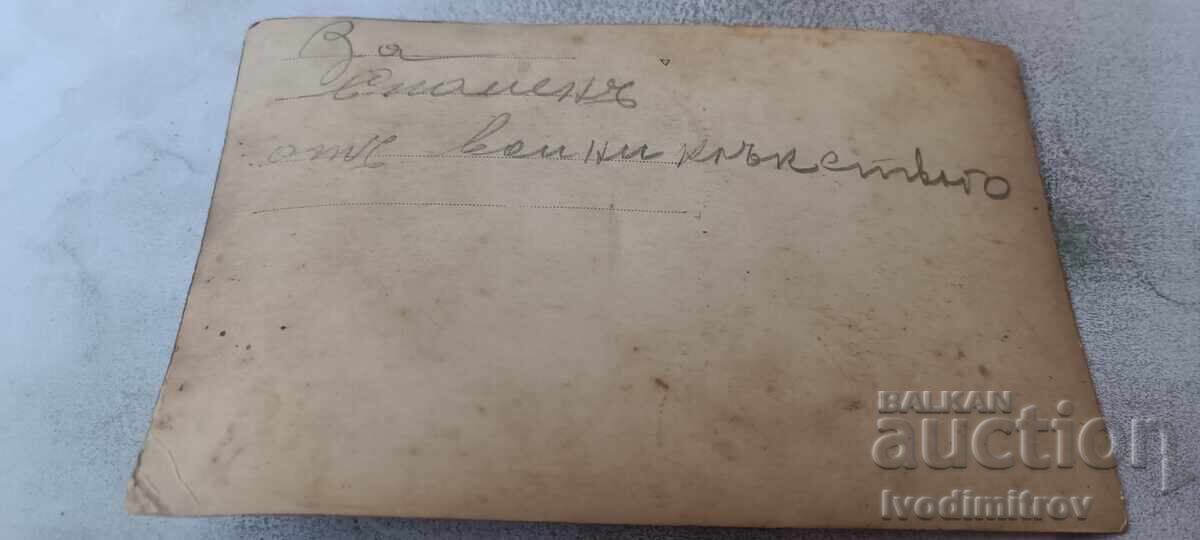 За
спаменъ
отъ воиниклъкството
BALKAN
auction
Ivodimitrov